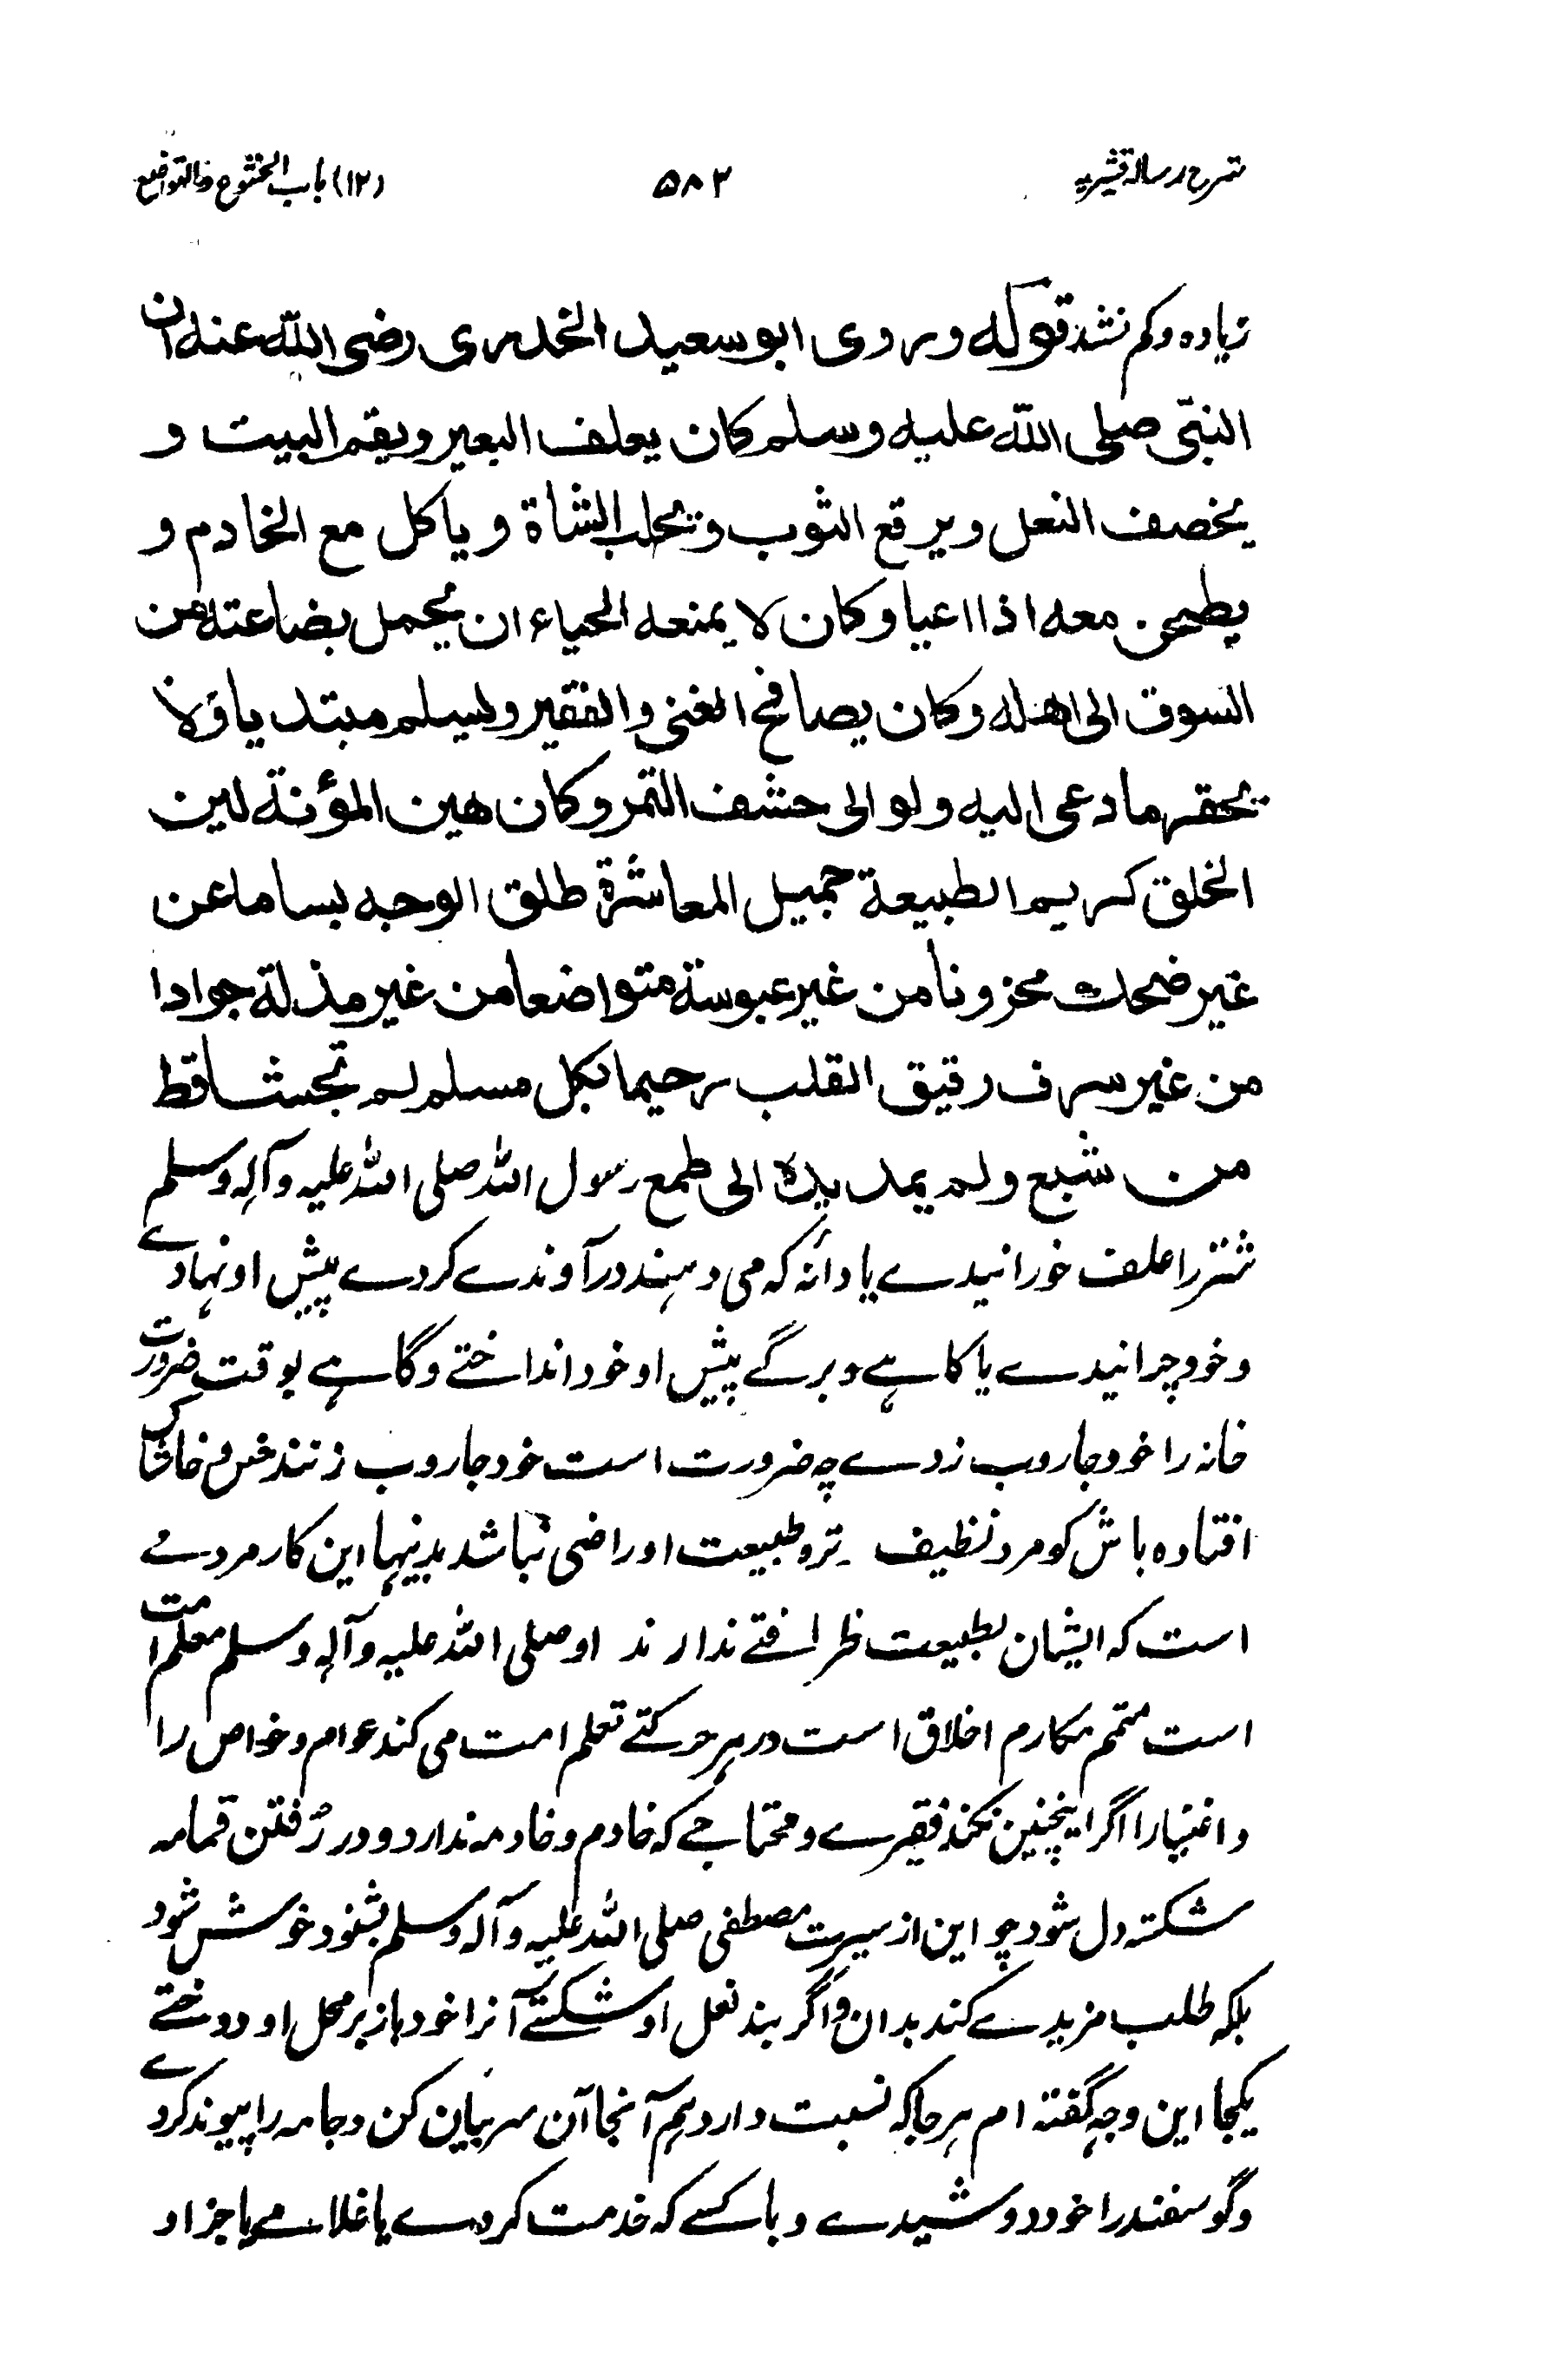 شرح رساله قشیریه ۵۸۳ (۱۲) باب الخشوع والتواضع
زیاده وکم نشد قوله وروی ابوسعید الخدری رضی الله عنه ان
النبی صلی الله علیه وسلم کان یعلف البعیر ویقم البیت و
یخصف النعل ویرقع الثوب ویحلب الشاة ویاکل مع الخادم و
یطحن معه اذا اعیا وکان لا یمنعه الحیاء ان یحمل بضاعته من
السوق الی اهله وکان یصافح الغنی والفقیر ویسلم مبتدیا ولا
یحقر ما دعی الیه ولو الی حشف التمر وکان هین المؤنة لین
الخلق کریم الطبیعة جمیل المعاشرة طلق الوجه بساما عن
غیر ضحك محزونا من غیر عبوسة متواضعا من غیر مذلة جوادا
من غیر سرف رقیق القلب رحیما بکل مسلم لم تجشا قط
من شبع ولم یمد یده الی طمع رسول الله صلی الله علیه وآله وسلم
شتر را علف خورانیدے یا دانه که می دهند در آوندے کردے پیش او نهادے
وخود چرانیدے یا کاهے وبرگے پیش او خود انداختے وگاهے بوقت ضرورت
خانه را خود جاروب زدے چه ضرورت است خود جاروب زنند خس و خاشاک
افتاده باش کو مرد نظیف تر وطبیعت او راضی نباشد بدینها این کار مردمے
است که ایشان بطبیعت ظرافتے ندارند او صلی الله علیه وآله وسلم معلم امت
است متمم مکارم اخلاق است در هر حرکتے تعلم امت می کند عوام وخواص را
واغنیا را اگر اینچنین نکند فقیرے ومحتاجے که خادم وخادمه ندارد ودر رُفتن قمامه
شکسته دل شود چو این از سیرت مصطفی صلی الله علیه وآله وسلم بشنود خوش شود
بلکه طلب مزیدے کند بدان واگر بند نعل او شکستے آنرا خود باز بر محل او دوختے
یکجا این وجه گفته ام هر جا که نسبت دارد هم آنجا آن سر بیان کن وجامه را پیوند کردے
وگوسفند را خود دوشیدے وبا کسے که خدمت کردے یا غلامے یا جز او